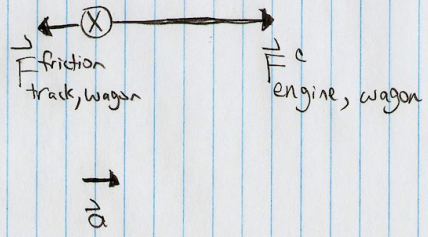 X
F friction
track, wagon
F c
engine, wagon
a